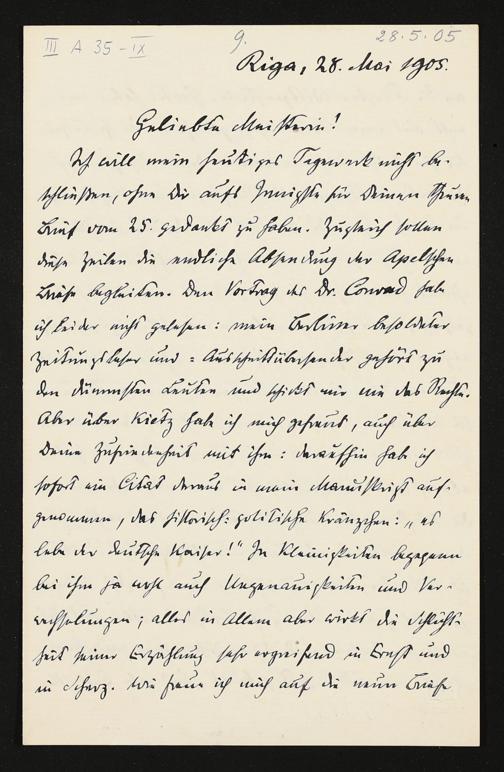 III A 35-IX
9.
28.5.05
Riga, 28. Mai 1905.
Geliebte Meisterin!
Ich will mein heutiges Tagewerk nicht be-
schließen, ohne Dir aufs Innigste für Deinen theuren
Brief vom 25. gedankt zu haben. Zugleich sollen
diese Zeilen die endliche Absendung der Apelschen
Briefe begleiten. Den Vortrag des Dr. Conrad habe
ich leider nicht gelesen: mein Berliner besoldeter
Zeitungsleser und = Ausschnittübersender gehört zu
den dümmsten Leuten und schickt mir nie das Rechte.
Aber über Kietz habe ich mich gefreut, auch über
Deine Zufriedenheit mit ihm: daraufhin habe ich
sofort ein Citat daraus in mein Manuskript auf-
genommen, das historisch-politische Kränzchen: „es
lebe der deutsche Kaiser!" In Kleinigkeiten begegnen
bei ihm ja wohl auch Ungenauigkeiten und Ver-
wechselungen; alles in Allem aber wirkt die Schlicht-
heit seiner Erzählung sehr ergreifend in Ernst und
in Scherz. Wie freue ich mich auf die neuen Briefe